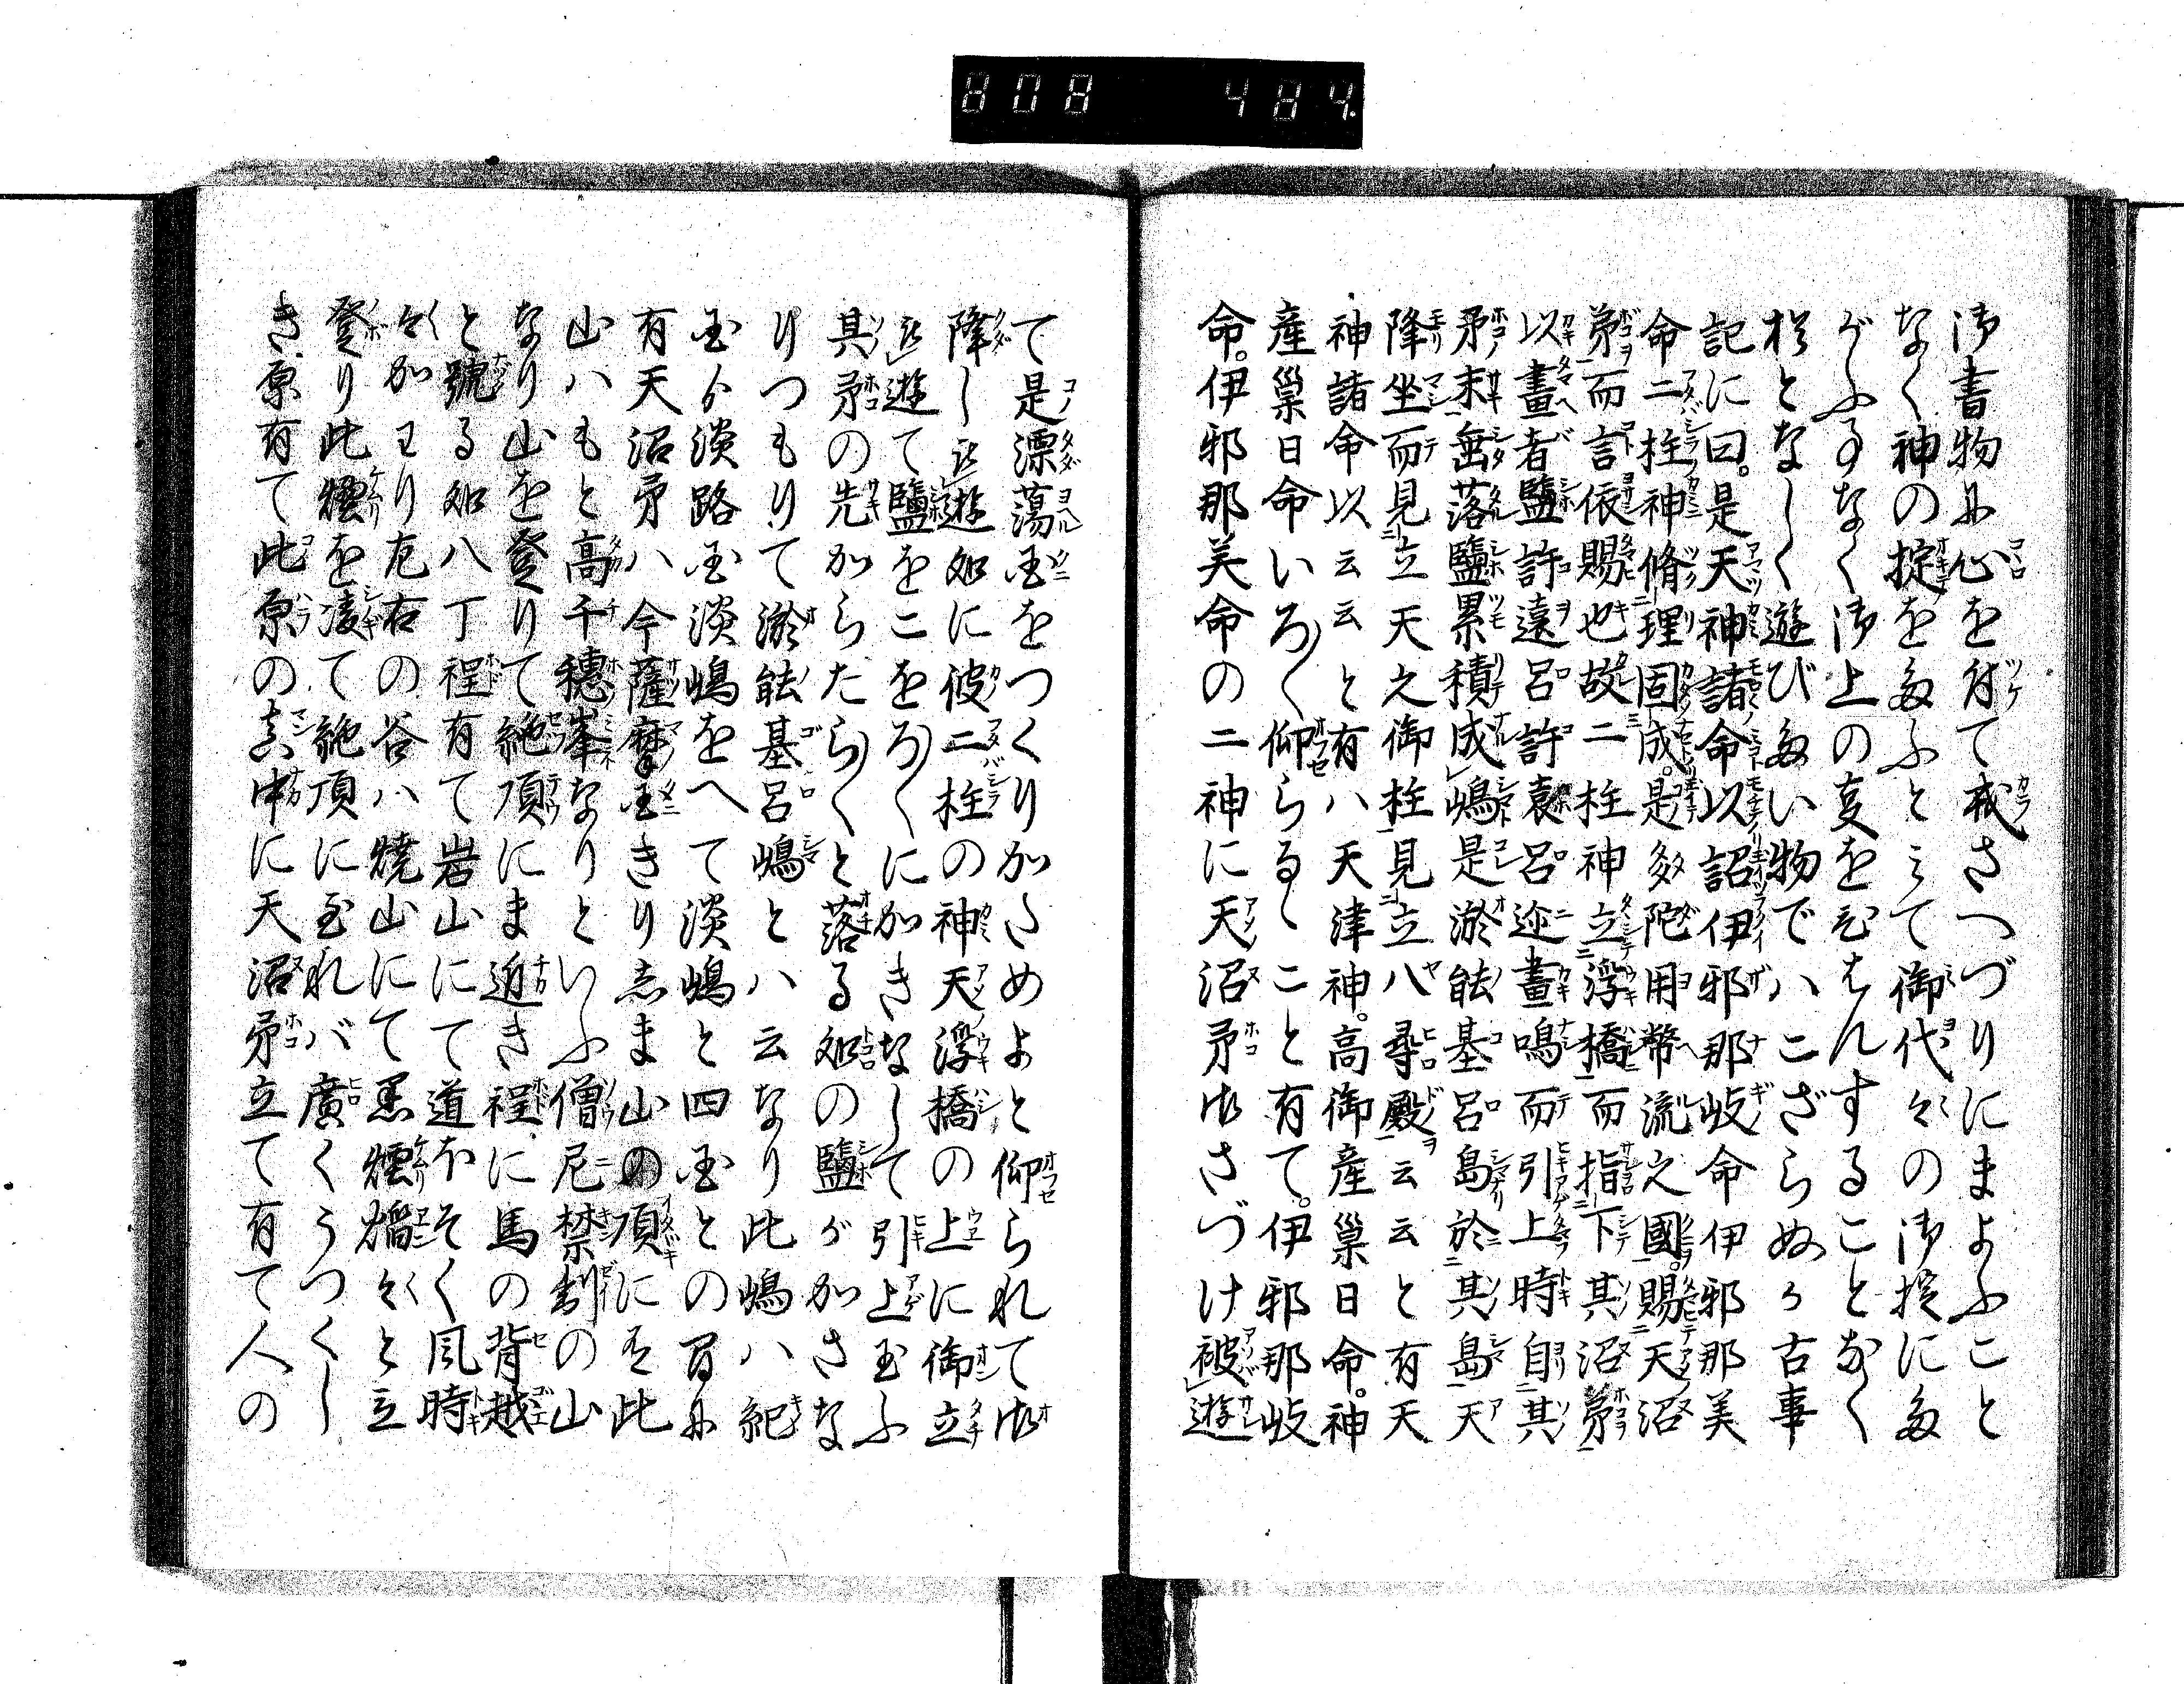 808 484.
御書物に心を付て戒さへづりにまよふこと
なく神の掟をたふとみて御代々の御掟にた
がふ事なく御上の変をむほんすることなく
様となしく遊びたい物でハこざらぬか古事
記に曰。是天神諸命以詔伊邪那岐命伊邪那美
命二柱神脩理固成。是多陀用幣流之國。賜天沼
矛而言依賜也故二柱神立浮橋而指下其沼矛
以畫者鹽許遠呂許袁呂迩畫鳴而引上時自其
矛末垂落鹽累積成嶋是淤能基呂島於其島天
降坐而見立天之御柱見立八尋殿云云と有天
神諸命以云云と有ハ天津神。高御産巣日命。神
産巣日命いろ〱仰らるゝこと有て。伊邪那岐
命。伊邪那美命の二神に天沼矛御さづけ被遊
て是漂蕩国をつくりかためよと仰られて御
降し被遊処に彼二柱の神天浮橋の上に御立
被遊て鹽をこをろ〱にかきなして引上玉ふ
其矛の先からたら〱と落る処の鹽がかさな
りつもりて淤能基呂嶋とハ云なり此嶋ハ紀
国ゟ淡路国淡嶋をへて淡嶋と四国との間に
有天沼矛ハ今薩摩国きりしま山の頂に有此
山ハもと高千穂峯なりといふ僧尼禁制の山
なり山を登りて絶頂にま近き程に馬の背越
と號る処八丁程有て岩山にて道ほそく風時
々かハり左右の谷ハ焼山にて黒煙焰々と立
登り此煙を凌て絶頂に至れバ廣くうつくし
き原有て此原の真中に天沼矛立て有て人の